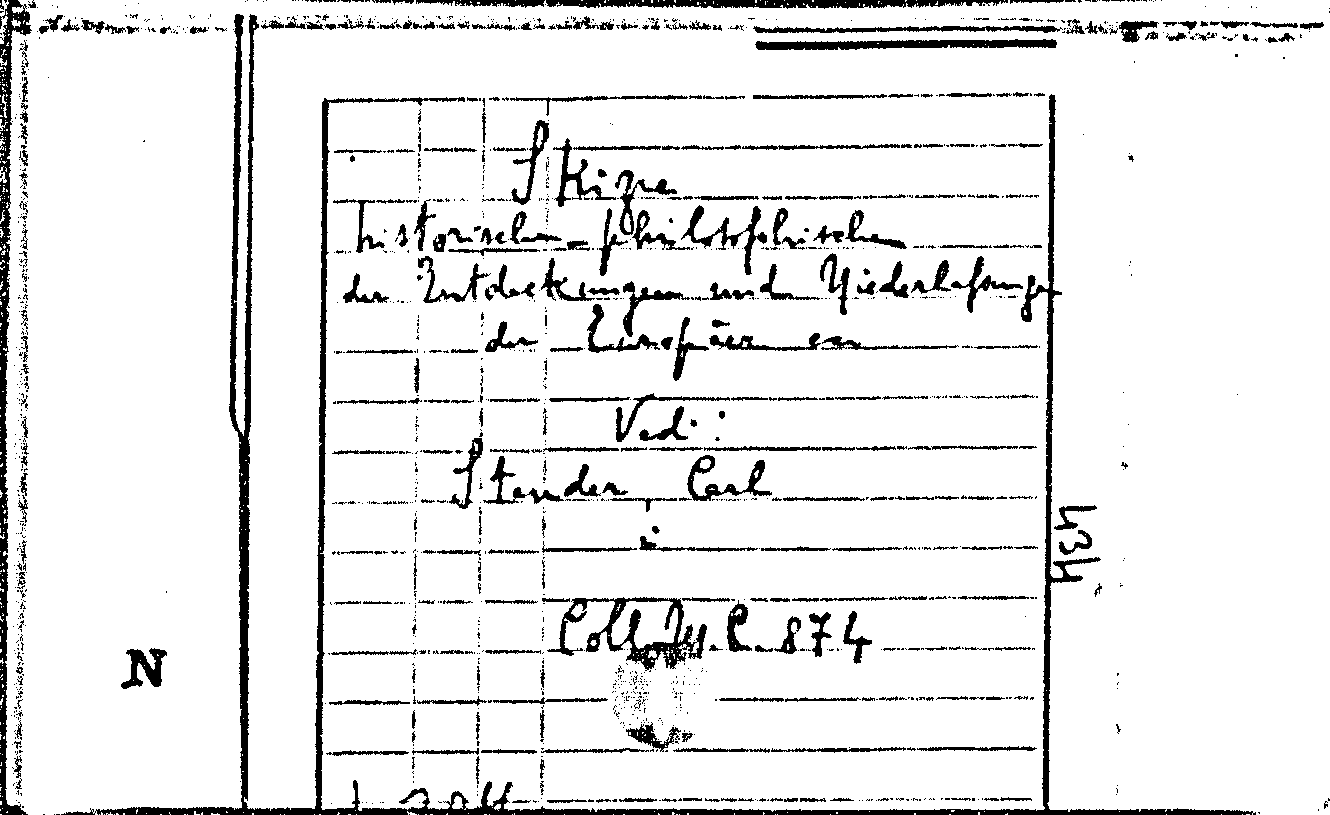 Skizze
historischen-philosophischen
der Entdeckungen und Niederlassungen
der Europäer
Vedi:
Stender, Carl
Coll. M.C. 874
434
N